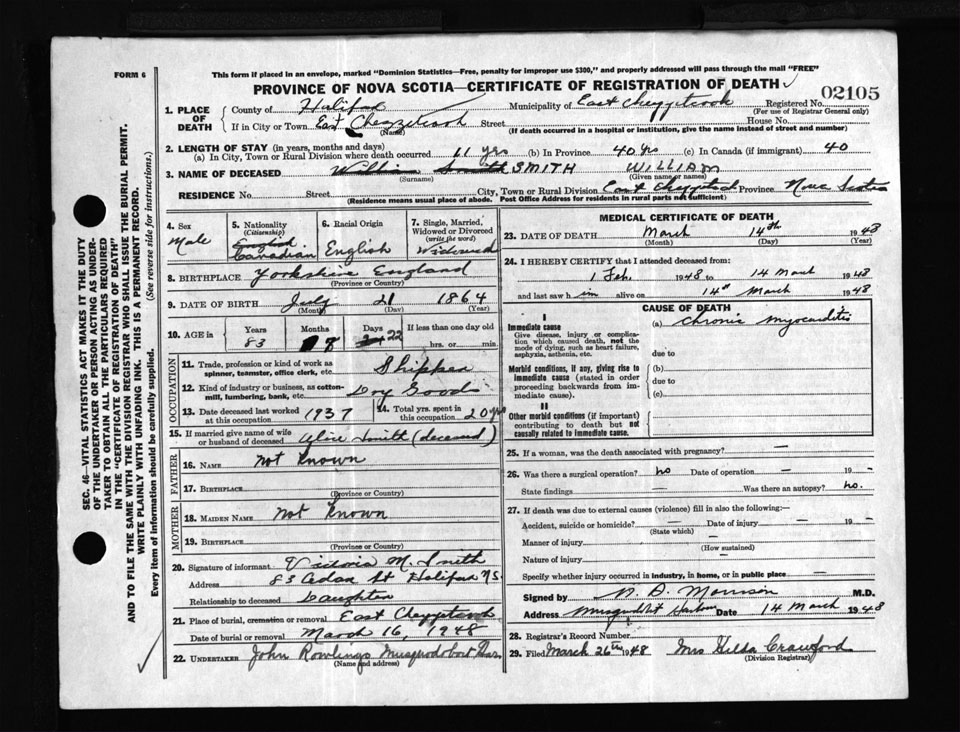 FORM 6
This form if placed in an envelope, marked "Dominion Statistics—Free, penalty for improper use $300," and properly addressed will pass through the mail "FREE"
PROVINCE OF NOVA SCOTIA—CERTIFICATE OF REGISTRATION OF DEATH
02105
1. PLACE OF DEATH
County of Halifax Municipality of East Chezzetcook Registered No.
(For use of Registrar General only)
If in City or Town East Chezzetcook Street House No.
(Name) (If death occurred in a hospital or institution, give the name instead of street and number)
2. LENGTH OF STAY (in years, months and days)
(a) In City, Town or Rural Division where death occurred 11 yrs (b) In Province 40 yrs (c) In Canada (if immigrant) 40
3. NAME OF DECEASED William Smith SMITH WILLIAM
(Surname) (Given name or names)
RESIDENCE No. Street City, Town or Rural Division East Chezzetcook Province Nova Scotia
(Residence means usual place of abode. Post Office Address for residents in rural parts not sufficient)
4. Sex
Male
5. Nationality (Citizenship)
English
Canadian
6. Racial Origin
English
7. Single, Married, Widowed or Divorced (write the word)
Widowed
8. BIRTHPLACE Yorkshire England
(Province or Country)
9. DATE OF BIRTH July 21 1864
(Month) (Day) (Year)
10. AGE in
Years Months Days If less than one day old
83 8 22 hrs. or min.
OCCUPATION
11. Trade, profession or kind of work as spinner, teamster, office clerk, etc. Shipper
12. Kind of industry or business, as cotton-mill, lumbering, bank, etc. Dry Goods
13. Date deceased last worked at this occupation 1937 14. Total yrs. spent in this occupation 20 yrs
15. If married give name of wife or husband of deceased Alice Smith (deceased)
FATHER
16. NAME Not Known
17. BIRTHPLACE
(Province or Country)
MOTHER
18. MAIDEN NAME Not Known
19. BIRTHPLACE
(Province or Country)
20. Signature of informant Victoria M. Smith
Address 83 Cedar St Halifax N.S.
Relationship to deceased Daughter
21. Place of burial, cremation or removal East Chezzetcook
Date of burial or removal March 16, 1948
22. UNDERTAKER John Rowlings Musquodoboit Har.
(Name and address)
MEDICAL CERTIFICATE OF DEATH
23. DATE OF DEATH March 14th 1948
(Month) (Day) (Year)
24. I HEREBY CERTIFY that I attended deceased from:
1 Feb. 1948 to 14 March 1948
and last saw him alive on 14th March 1948
CAUSE OF DEATH
I
Immediate cause
Give disease, injury or complication which caused death, not the mode of dying, such as heart failure, asphyxia, asthenia, etc.
(a) Chronic myocarditis
due to
Morbid conditions, if any, giving rise to immediate cause (stated in order proceeding backwards from immediate cause).
(b)
due to
(c)
II
Other morbid conditions (if important) contributing to death but not causally related to immediate cause.
25. If a woman, was the death associated with pregnancy? —
26. Was there a surgical operation? no Date of operation — 19 —
State findings — Was there an autopsy? no.
27. If death was due to external causes (violence) fill in also the following:—
Accident, suicide or homicide? — Date of injury — 19 —
(State which)
Manner of injury —
(How sustained)
Nature of injury —
Specify whether injury occurred in industry, in home, or in public place —
Signed by N. D. Morrison M.D.
Address Musquodoboit Harbour Date 14 March 1948
28. Registrar's Record Number
29. Filed March 26th 1948 Mrs Hilda Crawford
(Division Registrar)
SEC. 46—VITAL STATISTICS ACT MAKES IT THE DUTY
OF THE UNDERTAKER OR PERSON ACTING AS UNDER-
TAKER TO OBTAIN ALL THE PARTICULARS REQUIRED
IN THE "CERTIFICATE OF REGISTRATION OF DEATH"
AND TO FILE THE SAME WITH THE DIVISION REGISTRAR WHO SHALL ISSUE THE BURIAL PERMIT.
WRITE PLAINLY WITH UNFADING INK. THIS IS A PERMANENT RECORD.
Every item of information should be carefully supplied. (See reverse side for instructions.)